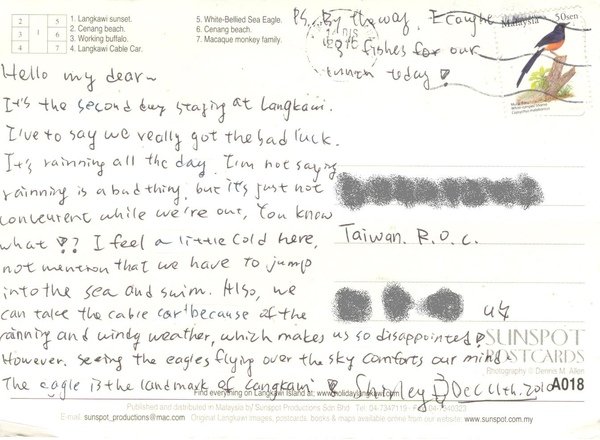 1. Langkawi sunset.
2. Cenang beach.
3. Working buffalo.
4. Langkawi Cable Car.
5. White-Bellied Sea Eagle.
6. Cenang beach.
7. Macaque monkey family.
2
5
3
1
6
4
7
P.S. By the way, I caught
fishes for our
today!
Malaysia
50sen
Hello my dear~
It's the second day staying at Langkawi.
I've to say we really got the bad luck.
It's rainning all the day. I'm not saying
rainning is a bad thing, but it's just not
convenient while we're out. You know
what!? I feel a little cold here,
not mention that we have to jump
into the sea and swim. Also, we
can take the cable car because of the
rainning and windy weather, which makes us so disappointed!
However, seeing the eagles flying over the sky comforts our mind.
The eagle is the landmark of Langkawi! Shirley Dec 11th. 2010
Taiwan. R.O.C.
SUNSPOT
POSTCARDS
Photography © Dennis M. Allen
A018
Find everything on Langkawi Island at: www.holidayslangkawi.com
Published and distributed in Malaysia by Sunspot Productions Sdn Bhd. Tel: 04-7347119 - Fax: 04-7340323
E-mail: sunspot_productions@mac.com Original Langkawi images, postcards, books & maps available online from our website. www.sunspot.com.my